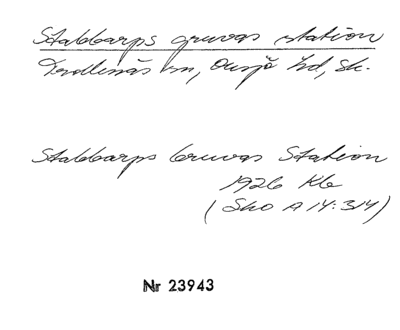 Stabbarps gruvas station
Trollenäs sn, Onsjö hd, Sk.
Stabbarps Gruvas Station
1926 Kb
(Sko A 14:314)
Nr 23943